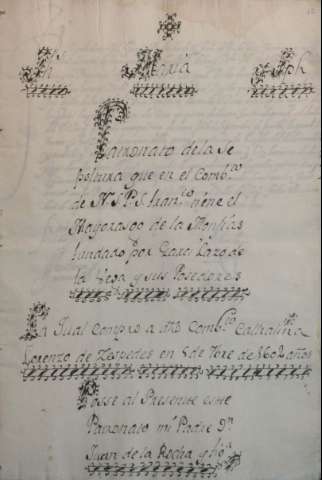 Jhs Maria Jph
Patronato de la Se
poltura que en el Combto
de N S P S Juan tiene el
Mayorasgo de la Montías
fundado por Garci Lazo de
la Vega y sus Posedores
La qual compro a dho Combto Cathalina
Lorenzo de Zespedes en 5 de de 1602 años
Posse al Presente este
Patronato mi Padre Dn
Juan de la Rocha y